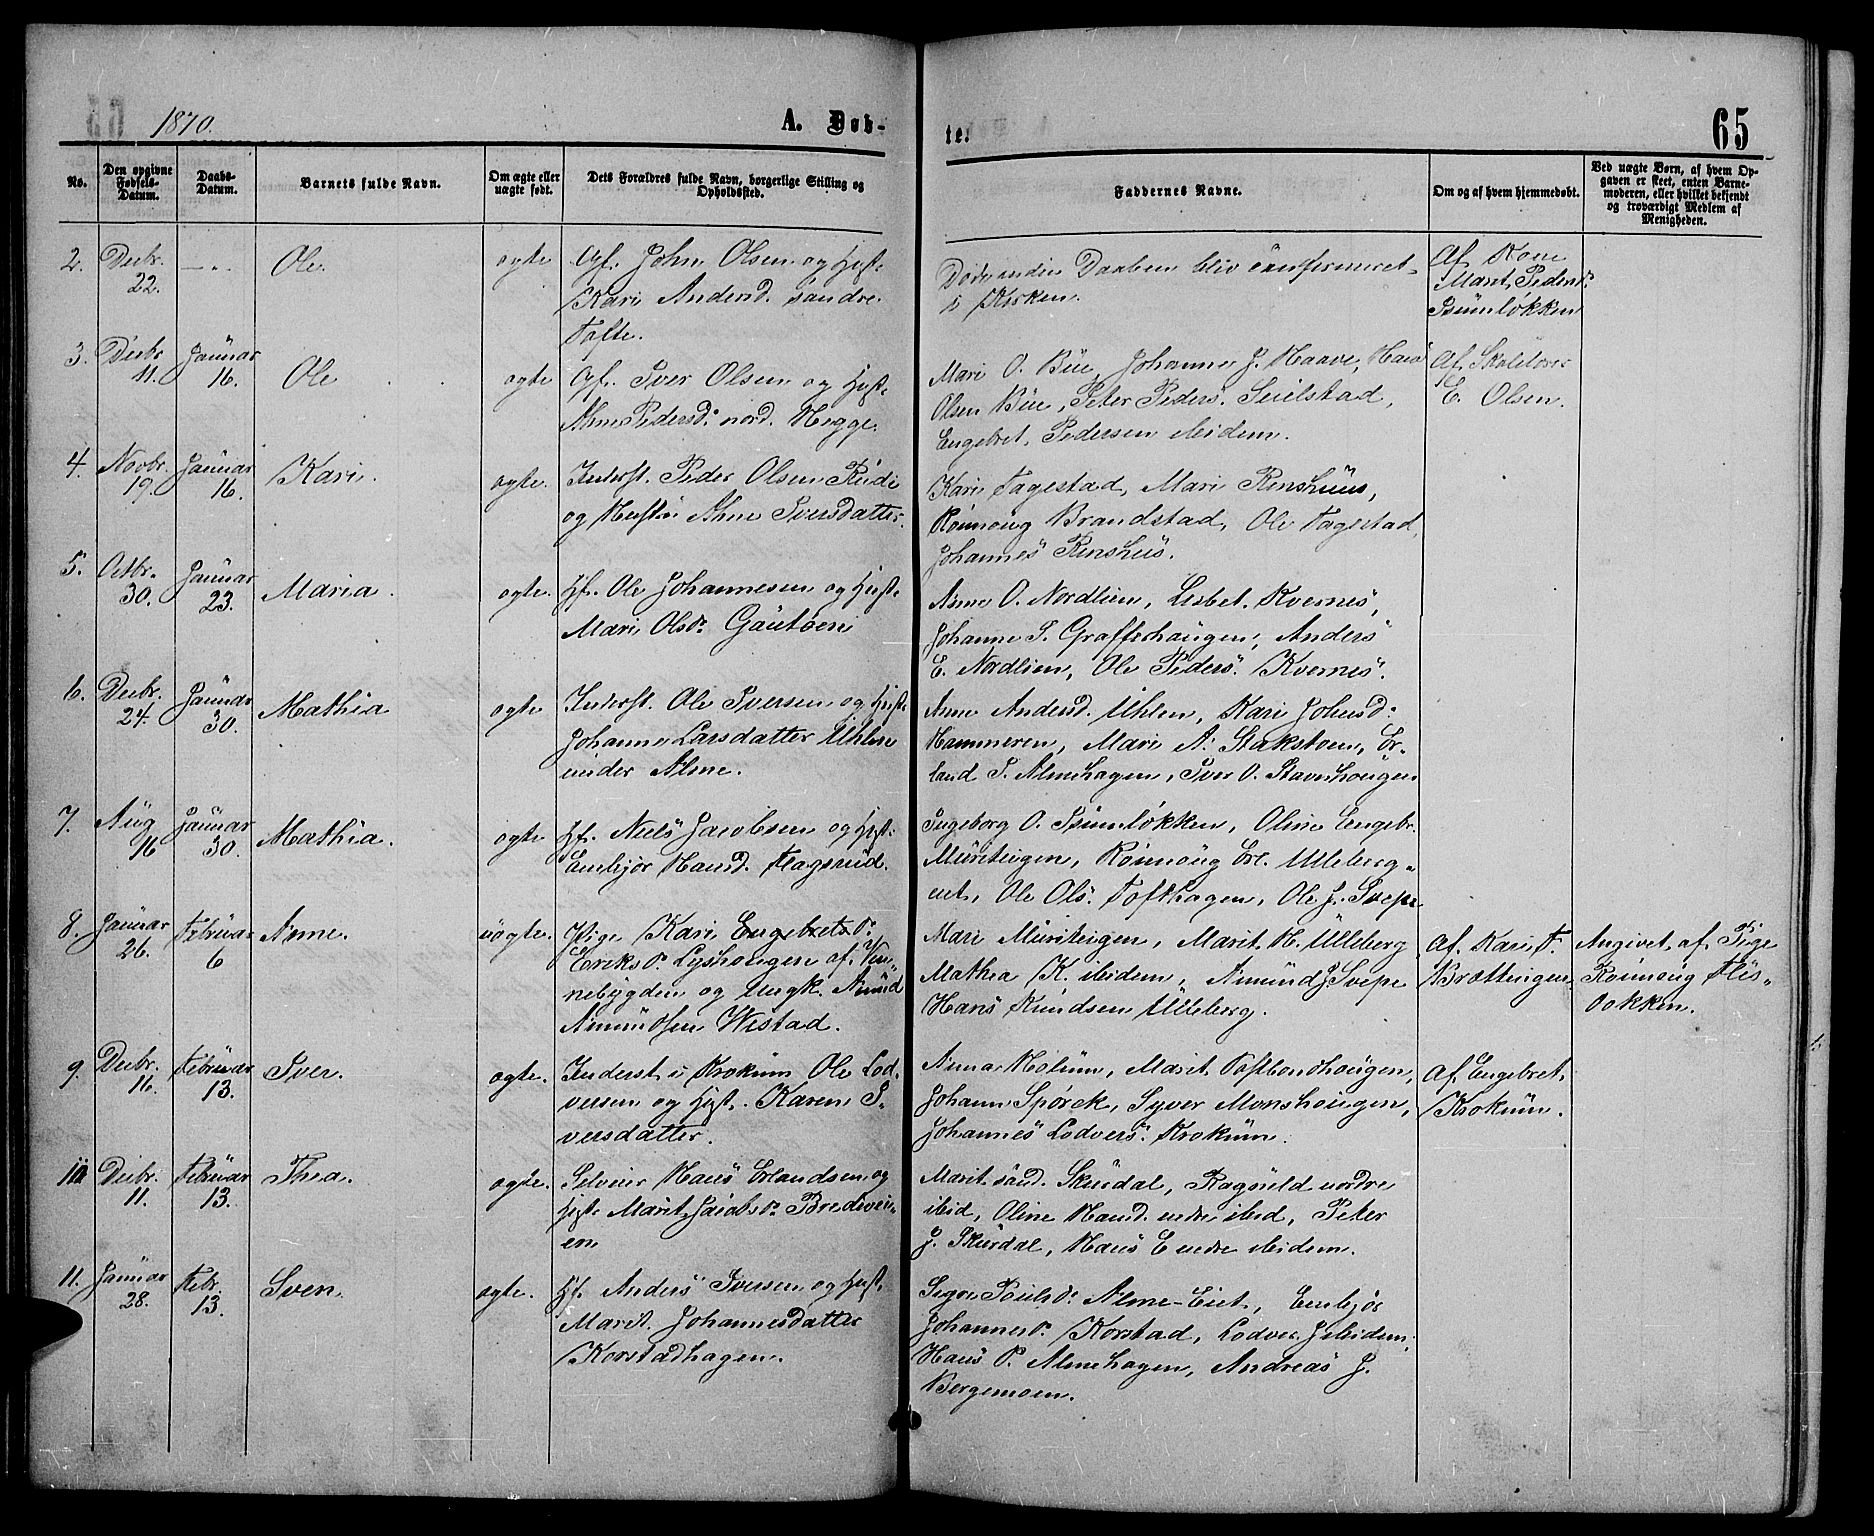 1870.
A. Døb-
te.
65
No.
Den opgivne
Fødsels-
Datum.
Daabs-
Datum.
Barnets fulde Navn.
Om ægte eller
uægte født.
Dets Forældres fulde Navn, borgerlige Stilling og
Opholdssted.
Faddernes Navne.
Om og af hvem hjemmedøbt.
Ved uægte Børn, af hvem Op-
gaven er skeet, enten Barne-
moderen, eller hvilket bekjendt
og troværdigt Medlem af
Menigheden.
2. Decbr. 22. Ole. ægte
John Olsen og Hust.
Kari Andersd. søndre
Tofte.
Døde inden Daaben blev confirmeret
i Kirken.
Af Kone
Marit Pedersd.
Isumløkken
3. Decbr. 11. Januar 16. Ole ægte
Gf. Iver Olsen og Hust.
Anne Pedersd. nord. Hegge.
Mari O. Bue, Johanne J. Haave, Hans
Olsen Bue, Peter Peders. Seilstad,
Engebret Pedersen ibidem.
Af Skolelærer
E. Olsen.
4. Novbr. 19. Januar 16. Kari. ægte.
Inderst. Peder Olsen Rudi
og Hustru Anne Iversdatter.
Kari Fagestad, Mari Rinshuus,
Rønnoug Brandstad, Ole Fagestad,
Johannes Rinshus.
5. Octbr. 30. Januar 23. Maria. ægte.
Hf. Ole Johannesen og Hust.
Mari Olsdr.
Anne O. Nordlien, Lisbet Kvernes,
Johanne P. Grafferhaugen, Anders
E. Nordlien, Ole Peders. Kvernes.
6. Decbr. 24. Januar 30. Mathia ægte
Inderst. Ole Iversen og Hust.
Johanne Larsdatter Uhlen
under Alme.
Anne Andersd. Uhlen, Kari Johnsd.
Hammeren, Mari A. Stakstoen, Er-
land P. Almehagen, Iver O. Stavershougen
7. Aug 16 Januar 30. Mathia. ægte
Hf. Niels Jacobsen og Hust.
Embjør Hansd. Flagsrud.
Ingeborg O. Isumløkken, Oline Engebr.
Muristeigen, Rønnoug Erl. Ulleberg-
eiet, Ole Ols. Tofthagen, Ole J. Svepe
8. Januar 26. Februar 6 Anne. uægte.
Pige Kari Engebretsdr.
Eriksdr. Lyshougen af Vin-
nebygden og Ungk. Amund
Amundsen Wistad.
Mari Muristeigen, Marit H. Ulleberg
Mathea K. ibidem, Amund J. Svepe
Hans Knudsen Ulleberg.
Af Kari F.
Brættingen
Angivet af Pige
Rønnoug Flis-
bakken.
9. Decbr. 16. Februar 13. Iver. ægte.
Inderst i Krokum Ole Lod-
versen og Hust. Karen I-
versdatter.
Anna Holum, Marit Toftbondhougen,
Johann Spørck, Syver Monshougen,
Johannes Lodvers. Krokum.
Af Engebret
Krokum.
10 Decbr. 11. Februar 13. Thea. ægte.
Selveier Hans Erlandsen og
Hust. Marit Jacobsdr. Bredevei-
en
Marit sønd. Skurdal, Ragnild nordre
ibid, Oline Hansd. nedre ibid, Peter
J. Skurdal, Hans E nedre ibidem.
11. Januar 28. Febr. 13. Sven. ægte.
Hf. Anders Iversen og Hust.
Marit Johannesdatter
Korstadhagen.
Signe Poulsdr. Alme-Eiet, Embjør
Johannesdr. Korstad, Lodver J. ibidem,
Hans P. Almehagen, Andreas J.
Bergemoen.